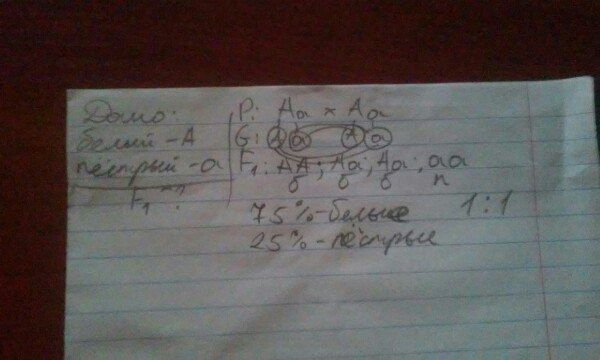 Дано:
белый - А
пёстрый - а
F₁ - ?
P: Aa × Aa
G: A a A a
F₁: AA; Aa; Aa; aa
б б б п
75% - белые 1:1
25% - пёстрые